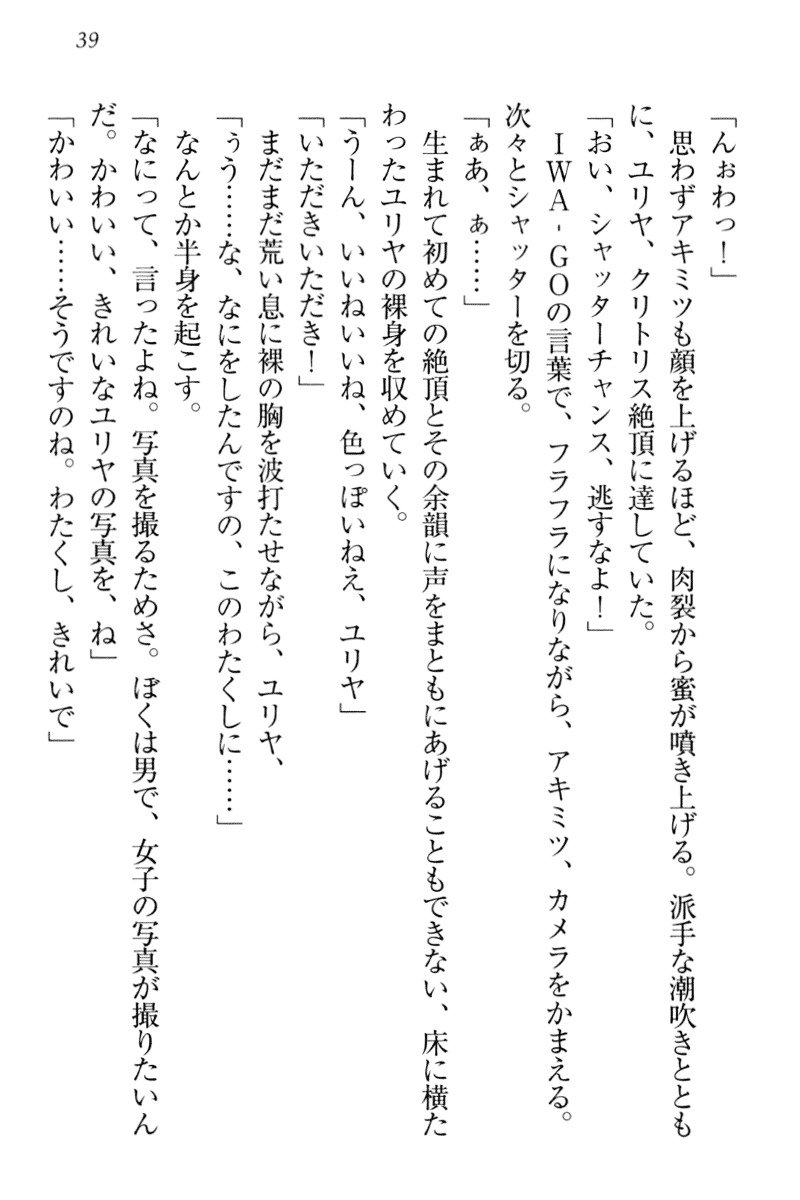 39
「んぉわっ！」
　思わずアキミツも顔を上げるほど、肉裂から蜜が噴き上げる。派手な潮吹きととも
に、ユリヤ、クリトリス絶頂に達していた。
「おい、シャッターチャンス、逃すなよ！」
　ＩＷＡ‐ＧＯの言葉で、フラフラになりながら、アキミツ、カメラをかまえる。
次々とシャッターを切る。
「ぁあ、ぁ……」
　生まれて初めての絶頂とその余韻に声をまともにあげることもできない、床に横た
わったユリヤの裸身を収めていく。
「うーん、いいねいいね、色っぽいねえ、ユリヤ」
「いただきいただき！」
　まだまだ荒い息に裸の胸を波打たせながら、ユリヤ、
「ぅう……な、なにをしたんですの、このわたくしに……」
　なんとか半身を起こす。
「なにって、言ったよね。写真を撮るためさ。ぼくは男で、女子の写真が撮りたいん
だ。かわいい、きれいなユリヤの写真を、ね」
「かわいい……そうですのね。わたくし、きれいで」